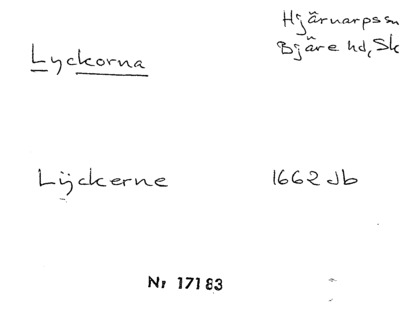 Hjärnarpssn
Lyckorna Bjäre hd, Sk
Lÿckerne 1662 Jb
Nr 17183